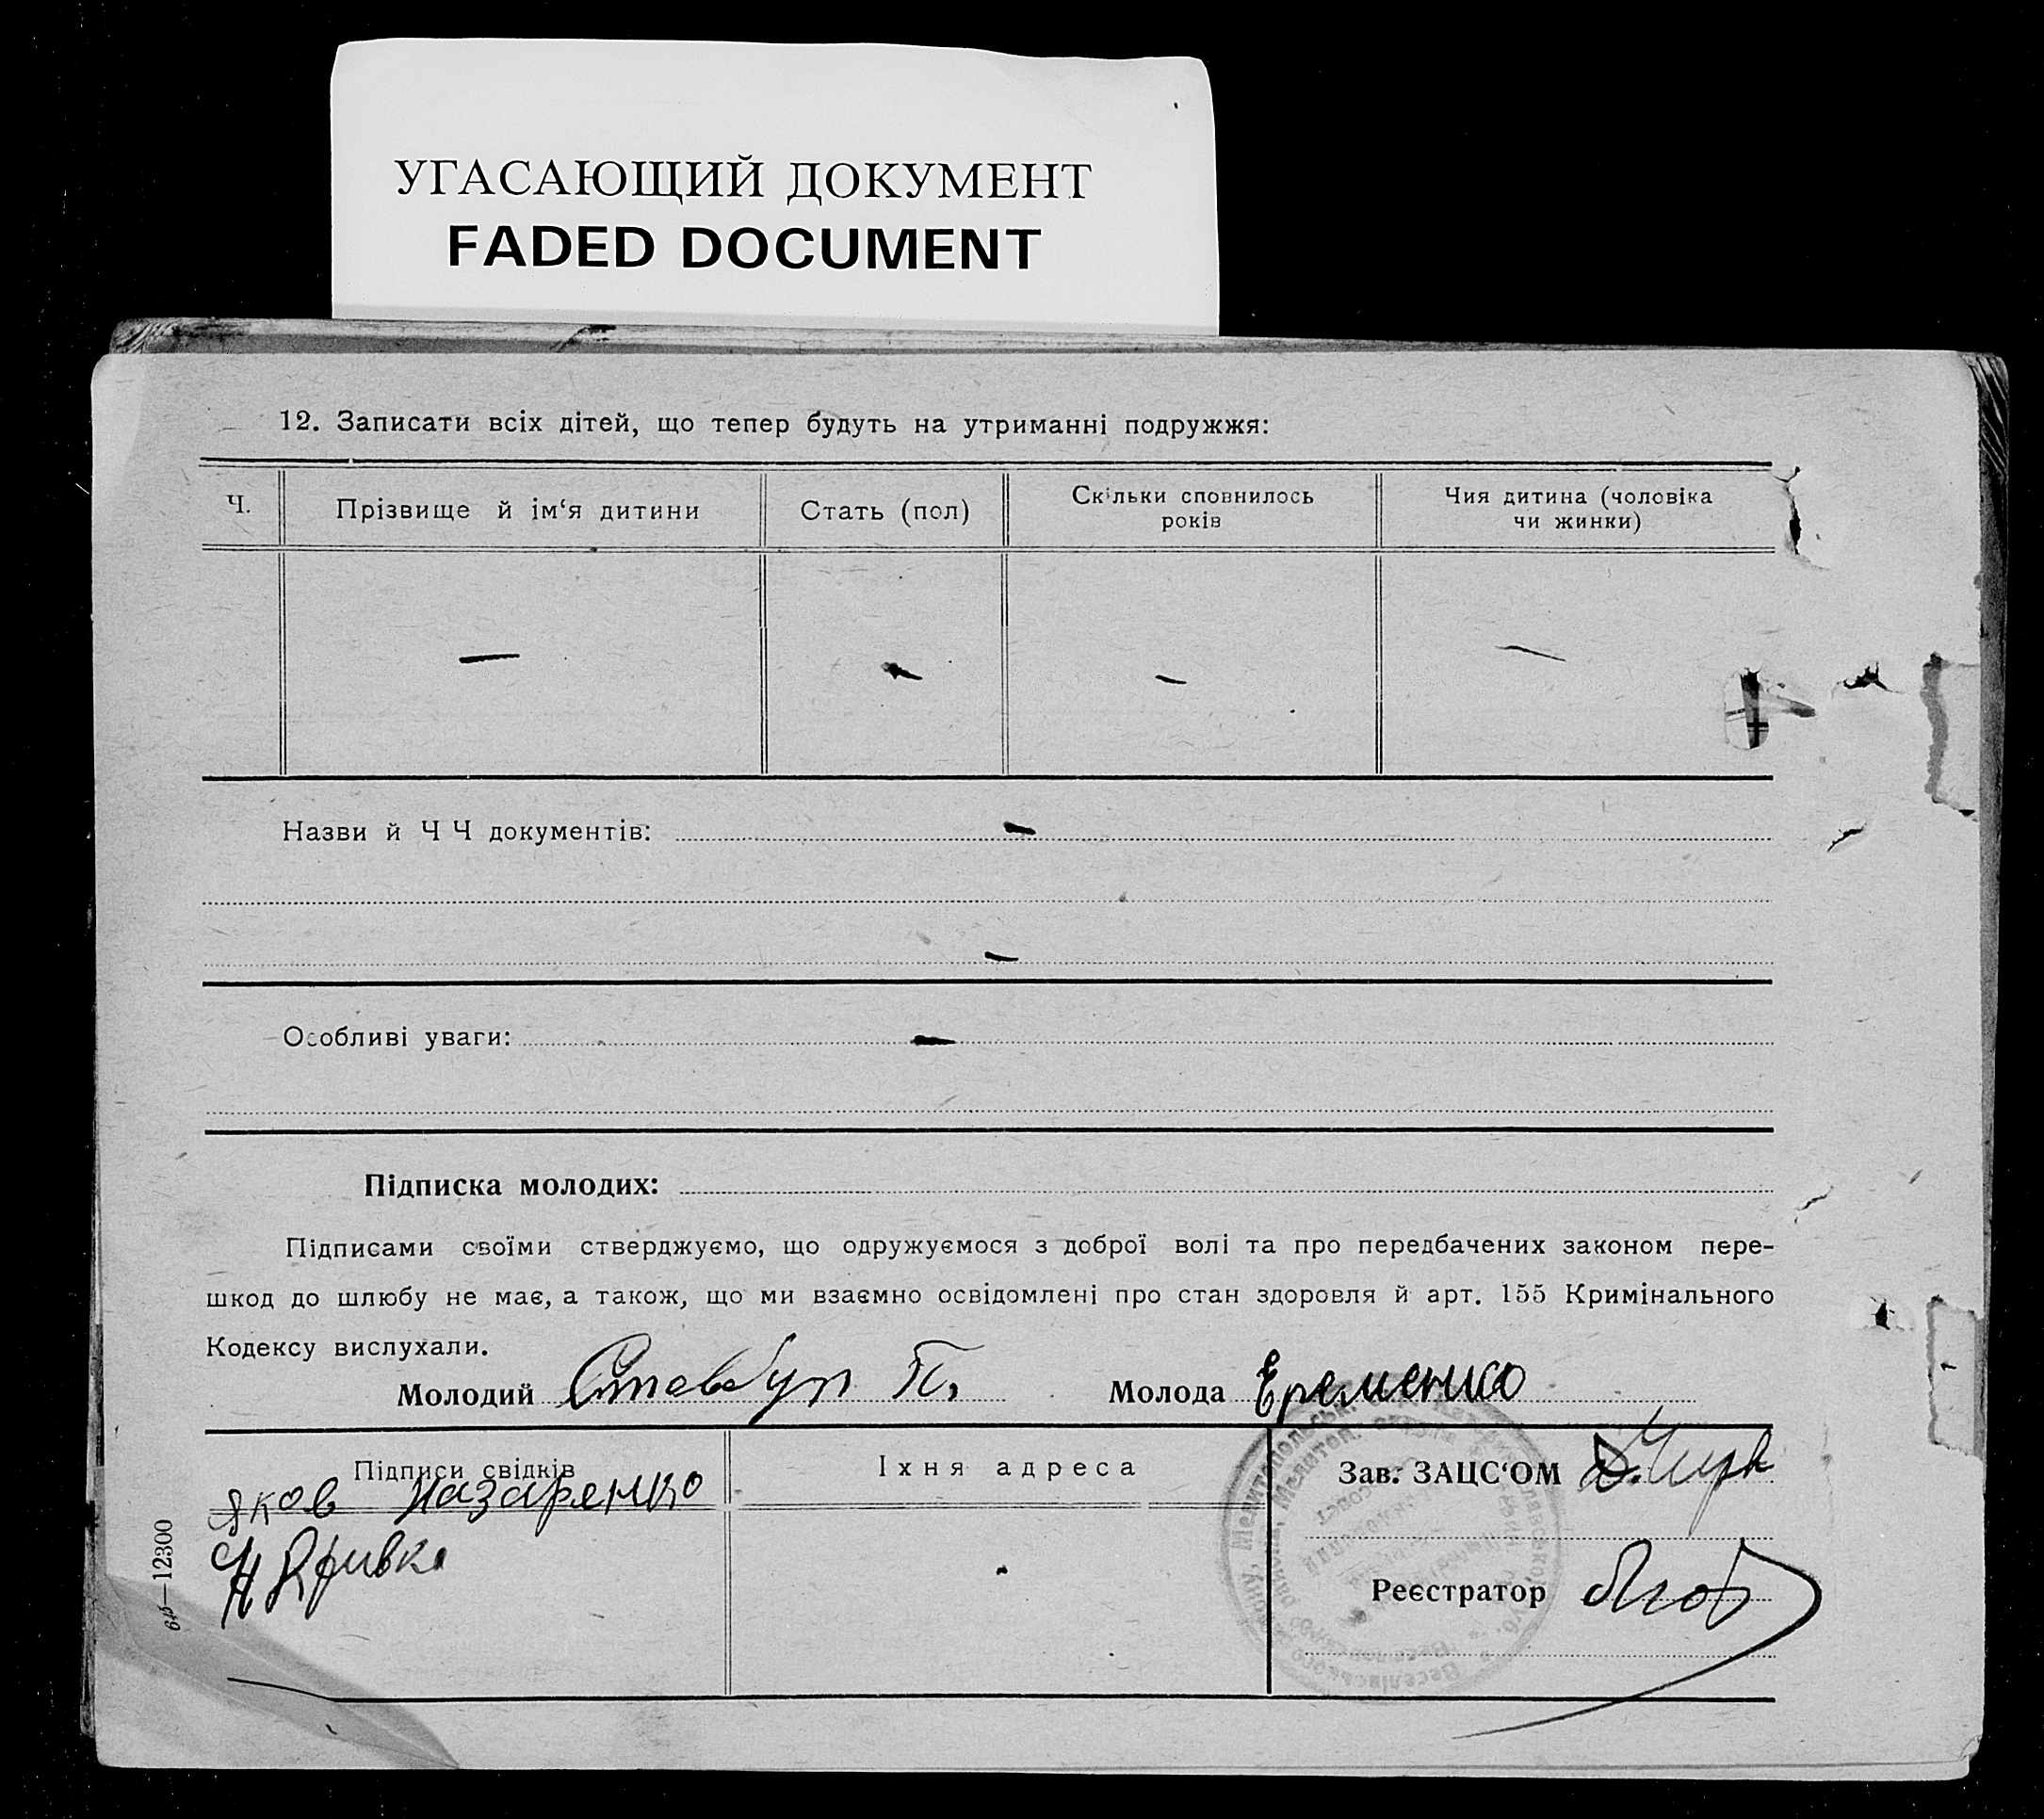 УГАСАЮЩИЙ ДОКУМЕНТ
FADED DOCUMENT
12. Записати всіх дітей, що тепер будуть на утриманні подружжя:
Ч.
Прізвище й ім‘я дитини
Стать (пол)
Скільки сповнилось
років
Чия дитина (чоловіка
чи жинки)
— — — —
Назви й Ч Ч документів: —
—
Особливі уваги: —
Підписка молодих:
Підписами своїми стверджуємо, що одружуємося з доброї волі та про передбачених законом пере-
шкод до шлюбу не має, а також, що ми взаємно освідомлені про стан здоровля й арт. 155 Кримінального
Кодексу вислухали.
Молодий П. Молода Еременко
Підписи свідків
Їхня адреса
Зав. ЗАЦС‘ОМ
Яков Назаренко
Реєстратор
—12300